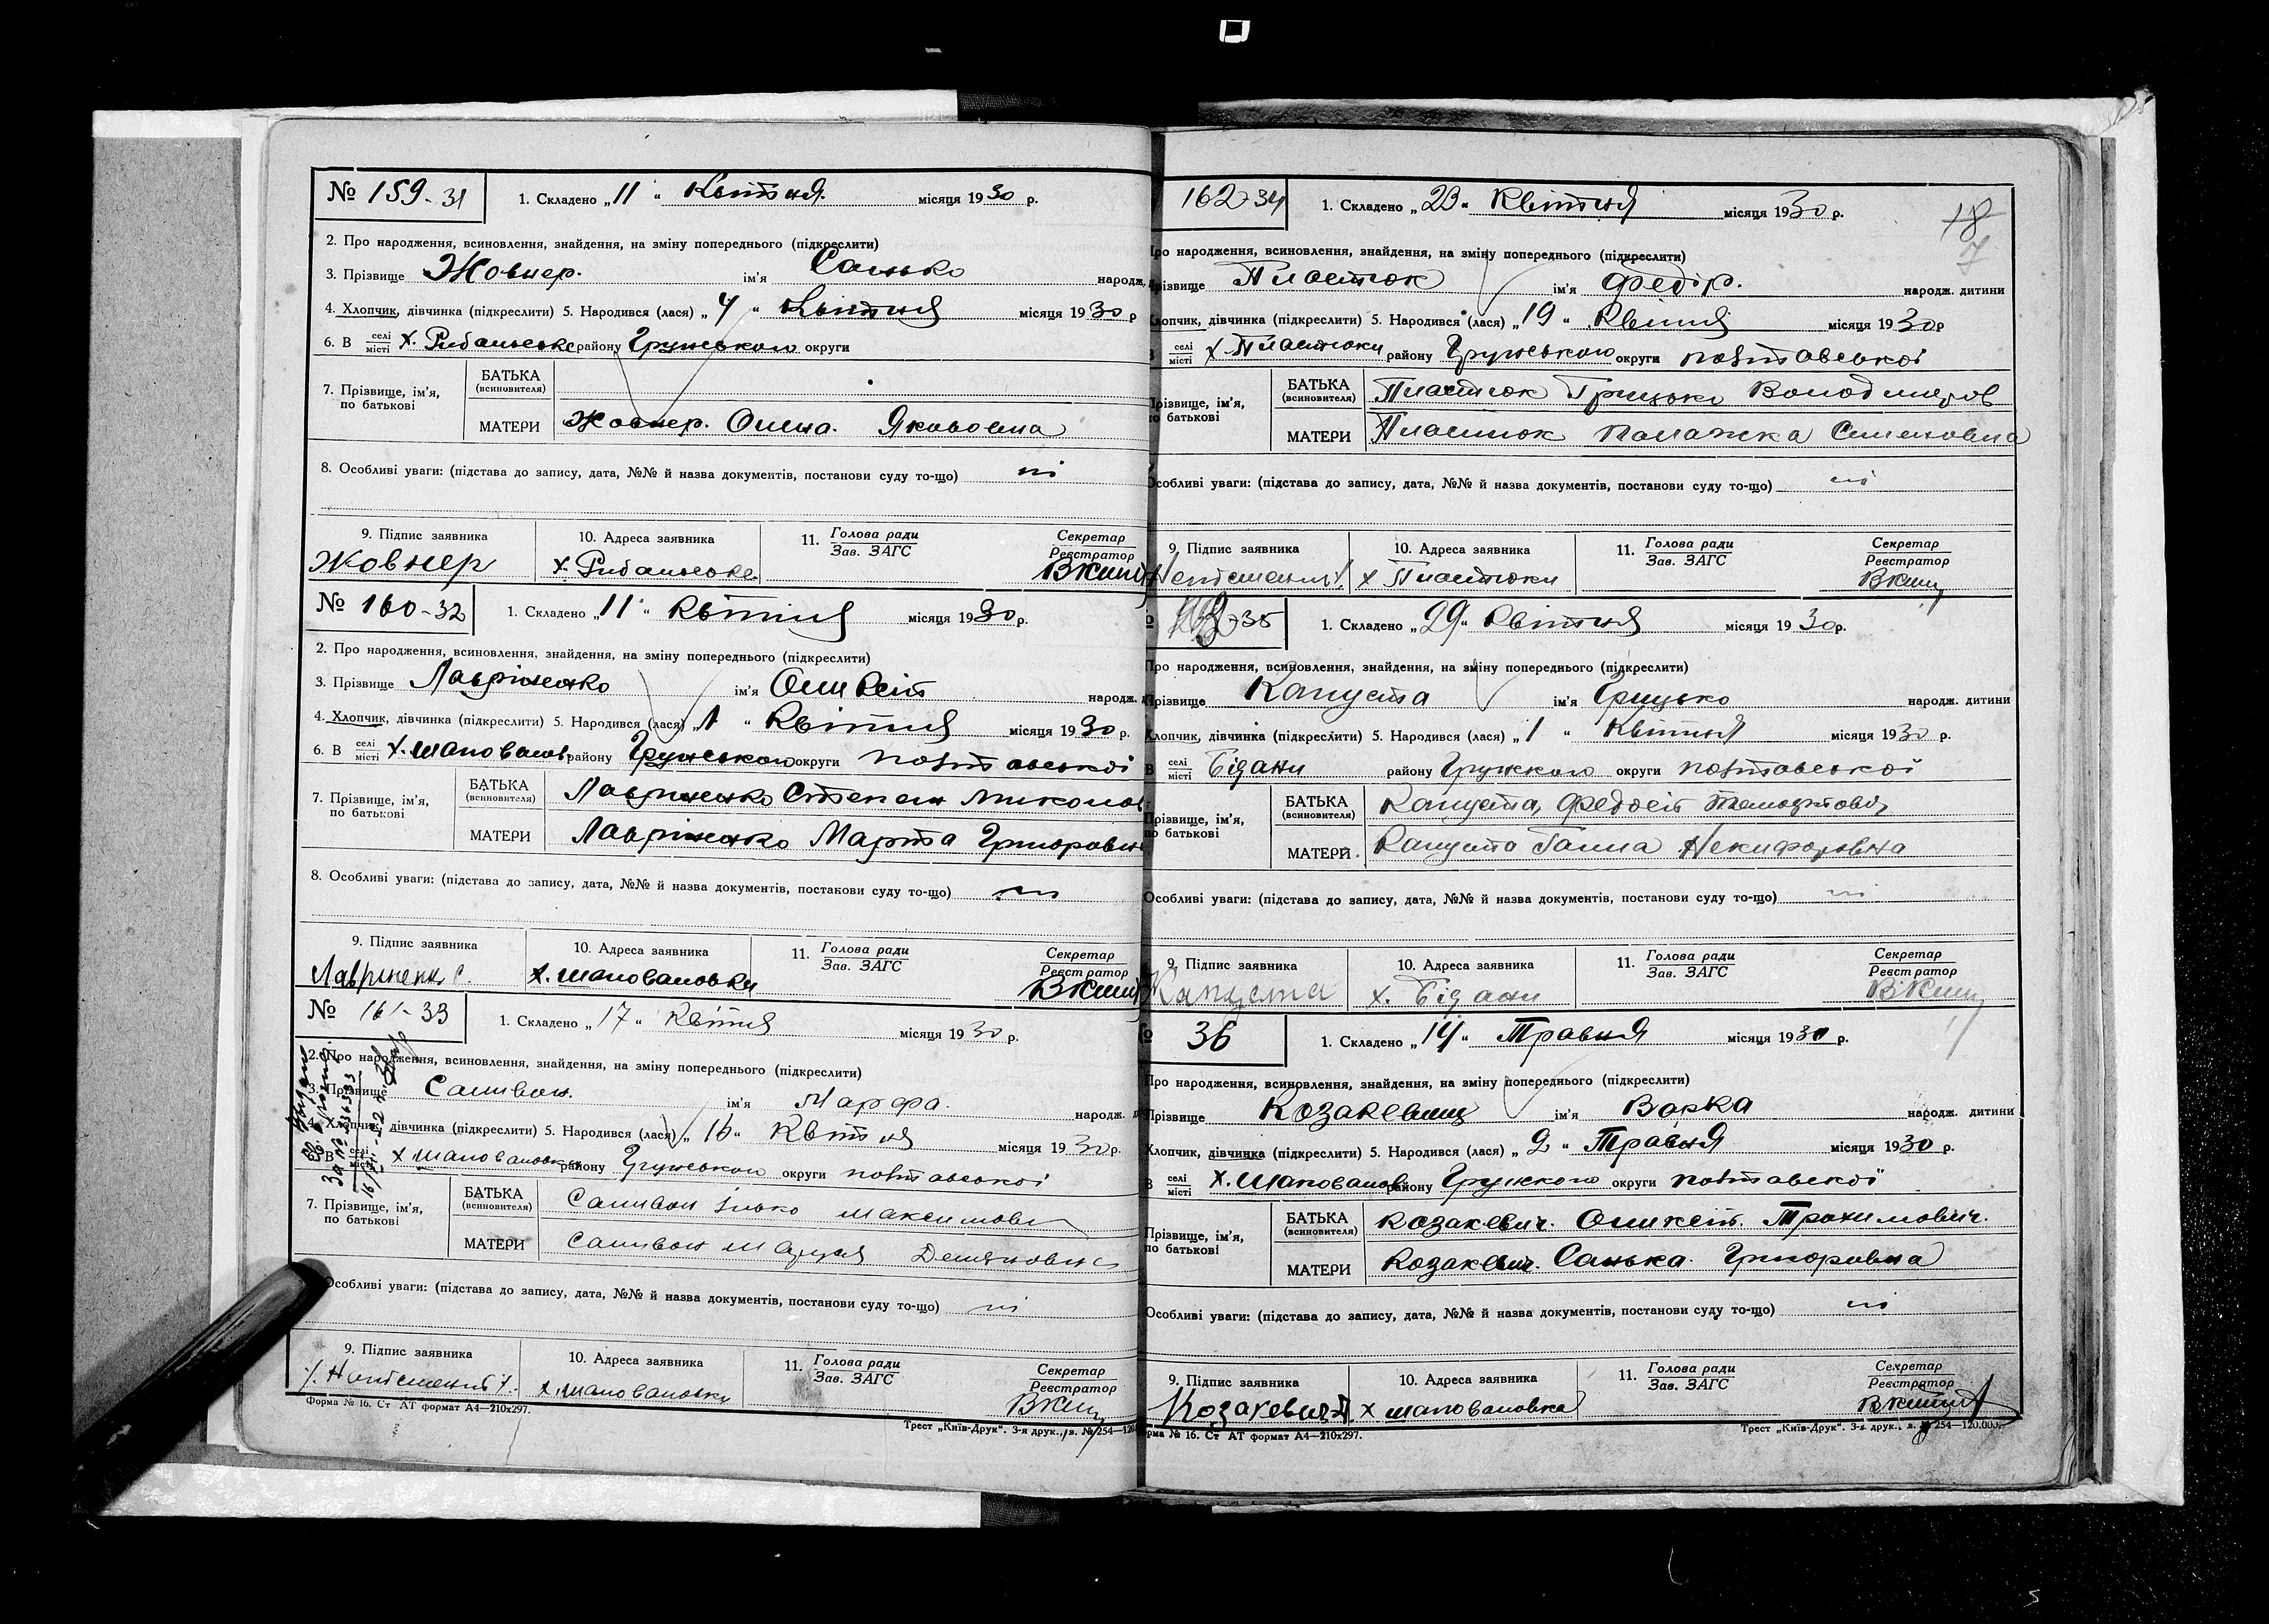 № 159-31
1. Складено „11“ Квітня місяця 1930 р.
2. Про народження, всиновлення, знайдення, на зміну попереднього (підкреслити)
3. Прізвище Жовнер. ім'я Санько народж.
4. Хлопчик, дівчинка (підкреслити) 5. Народився (лася) „4“ Квітня місяця 1930 р
6. В селі місті х. Рибальське району Грунського округи
7. Прізвище, ім'я, по батькові
БАТЬКА (всиновителя)
МАТЕРИ Жовнер. Олена. Якововна
8. Особливі уваги: (підстава до запису, дата, №№ й назва документів, постанови суду то-що) ні
9. Підпис заявника 10. Адреса заявника 11. Голова ради Зав. ЗАГС Секретар Реєстратор
Жовнер х. Рибальське.
№ 160-32
1. Складено „11“ Квітня місяця 1930 р.
2. Про народження, всиновлення, знайдення, на зміну попереднього (підкреслити)
3. Прізвище Лавріненко ім'я народж.
4. Хлопчик, дівчинка (підкреслити) 5. Народився (лася) „1“ Квітня місяця 1930 р.
6. В селі місті району Грунського округи Полтавської
7. Прізвище, ім'я, по батькові
БАТЬКА (всиновителя) Лавріненко Степан Миколов
МАТЕРИ Лавріненко Марта Григоровн
8. Особливі уваги: (підстава до запису, дата, №№ й назва документів, постанови суду то-що) ні
9. Підпис заявника 10. Адреса заявника 11. Голова ради Зав. ЗАГС Секретар Реєстратор
х. Шаповаловка
№ 161-33
1. Складено „17“ Квітня місяця 1930 р.
2. Про народження, всиновлення, знайдення, на зміну попереднього (підкреслити)
3. Прізвище Саливон. ім'я Марфа. народж.
4. Хлопчик, дівчинка (підкреслити) 5. Народився (лася) „16“ Квітня місяця 1930 р.
6. В селі місті х Шаповаловка району Грунського округи Полтавської
7. Прізвище, ім'я, по батькові
БАТЬКА (всиновителя) Саливон Ілько Максимови
МАТЕРИ Саливон
Особливі уваги: (підстава до запису, дата, №№ й назва документів, постанови суду то-що) ні
9. Підпис заявника 10. Адреса заявника 11. Голова ради Зав. ЗАГС Секретар Реєстратор
х. Шаповаловка
Форма № 16. Ст АТ формат А4—210х297.
Трест „Київ-Друк“. 3-я друк., з. № 254—120
162-34
1. Складено „23“ Квітня місяця 1930 р.
18
7
Про народження, всиновлення, знайдення, на зміну попереднього (підкреслити)
різвище Пластюк ім'я Федір. народж. дитини
Хлопчик, дівчинка (підкреслити) 5. Народився (лася) „19“ Квітня місяця 1930 р
В селі місті х. Пластюки району Грунського округи Полтавської
Прізвище, ім'я, по батькові
БАТЬКА (всиновителя) Пластюк Грицько Володимиров
МАТЕРИ Пластюк Палажка Семеновна
Особливі уваги: (підстава до запису, дата, №№ й назва документів, постанови суду то-що) ні
9. Підпис заявника 10. Адреса заявника 11. Голова ради Зав. ЗАГС Секретар Реєстратор
Неписьменний х Пластюки
-35
1. Складено „29“ Квітня місяця 1930 р.
Про народження, всиновлення, знайдення, на зміну попереднього (підкреслити)
Прізвище Капуста ім'я Грицько народж. дитини
Хлопчик, дівчинка (підкреслити) 5. Народився (лася) „1“ Квітня місяця 1930 р.
В селі місті Бідани району Грунського округи Полтавської
Прізвище, ім'я, по батькові
БАТЬКА (всиновителя) Капуста Федосій
МАТЕРИ. Капуста Ганна Некифоровна
Особливі уваги: (підстава до запису, дата, №№ й назва документів, постанови суду то-що) ні
9. Підпис заявника 10. Адреса заявника 11. Голова ради Зав. ЗАГС Секретар Реєстратор
Капуста х. Бідани
36
1. Складено „14“ Травня місяця 1930 р.
Про народження, всиновлення, знайдення, на зміну попереднього (підкреслити)
Прізвище Козакевич ім'я Варка народж. дитини
Хлопчик, дівчинка (підкреслити) 5. Народився (лася) „2“ Травня місяця 1930 р.
В селі місті х. Шаповалов району Грунського округи Полтавскої
Прізвище, ім'я, по батькові
БАТЬКА (всиновителя) Козакевич. Трохимович.
МАТЕРИ Козакевич. Санька. Григоровна
Особливі уваги: (підстава до запису, дата, №№ й назва документів, постанови суду то-що) ні
9. Підпис заявника 10. Адреса заявника 11. Голова ради Зав. ЗАГС Секретар Реєстратор
Козакевич х Шаповаловка
рма № 16. Ст АТ формат А4—210х297.
Трест „Київ-Друк“. 3-я друк., з. № 254—120.000.